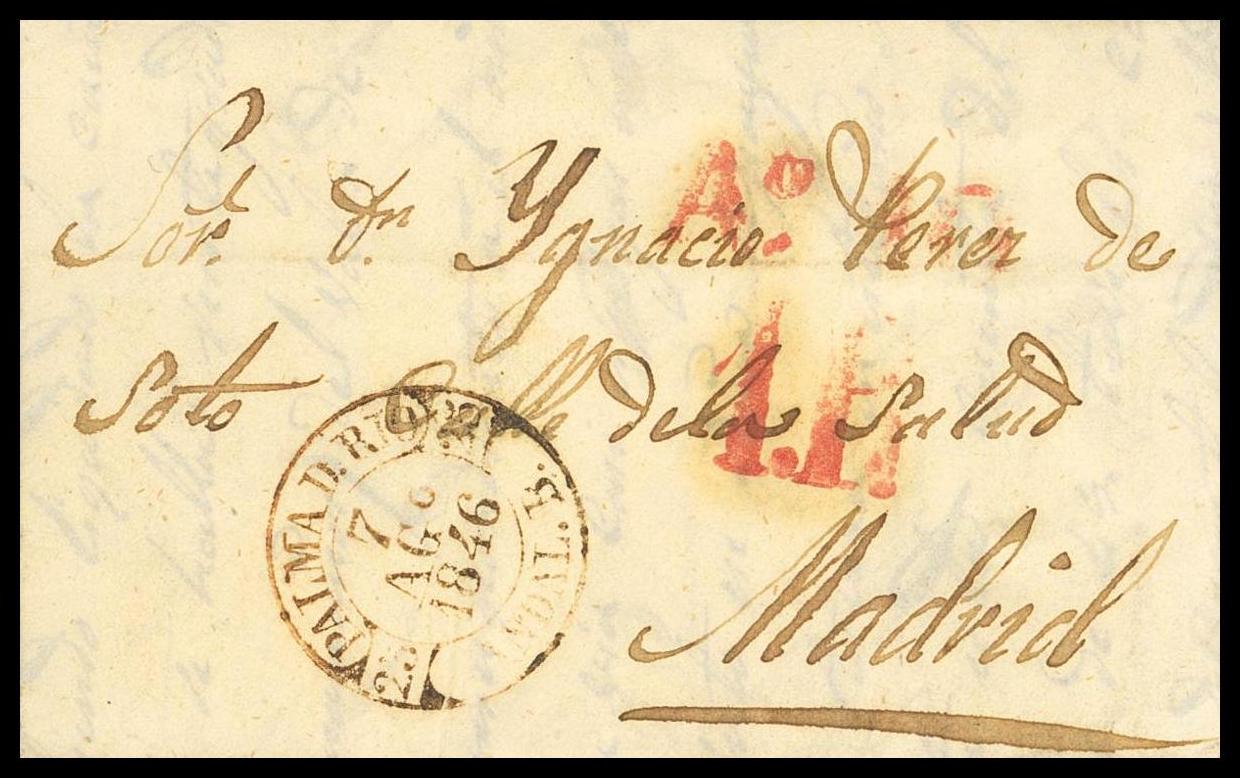 Sor. Dn. Ygnacio Perez de
Soto Calle dela Salud
Madrid
PALMA D. RIO
ANDAL. B.
7
AGo
1846
22
22
Ao.
1.R.